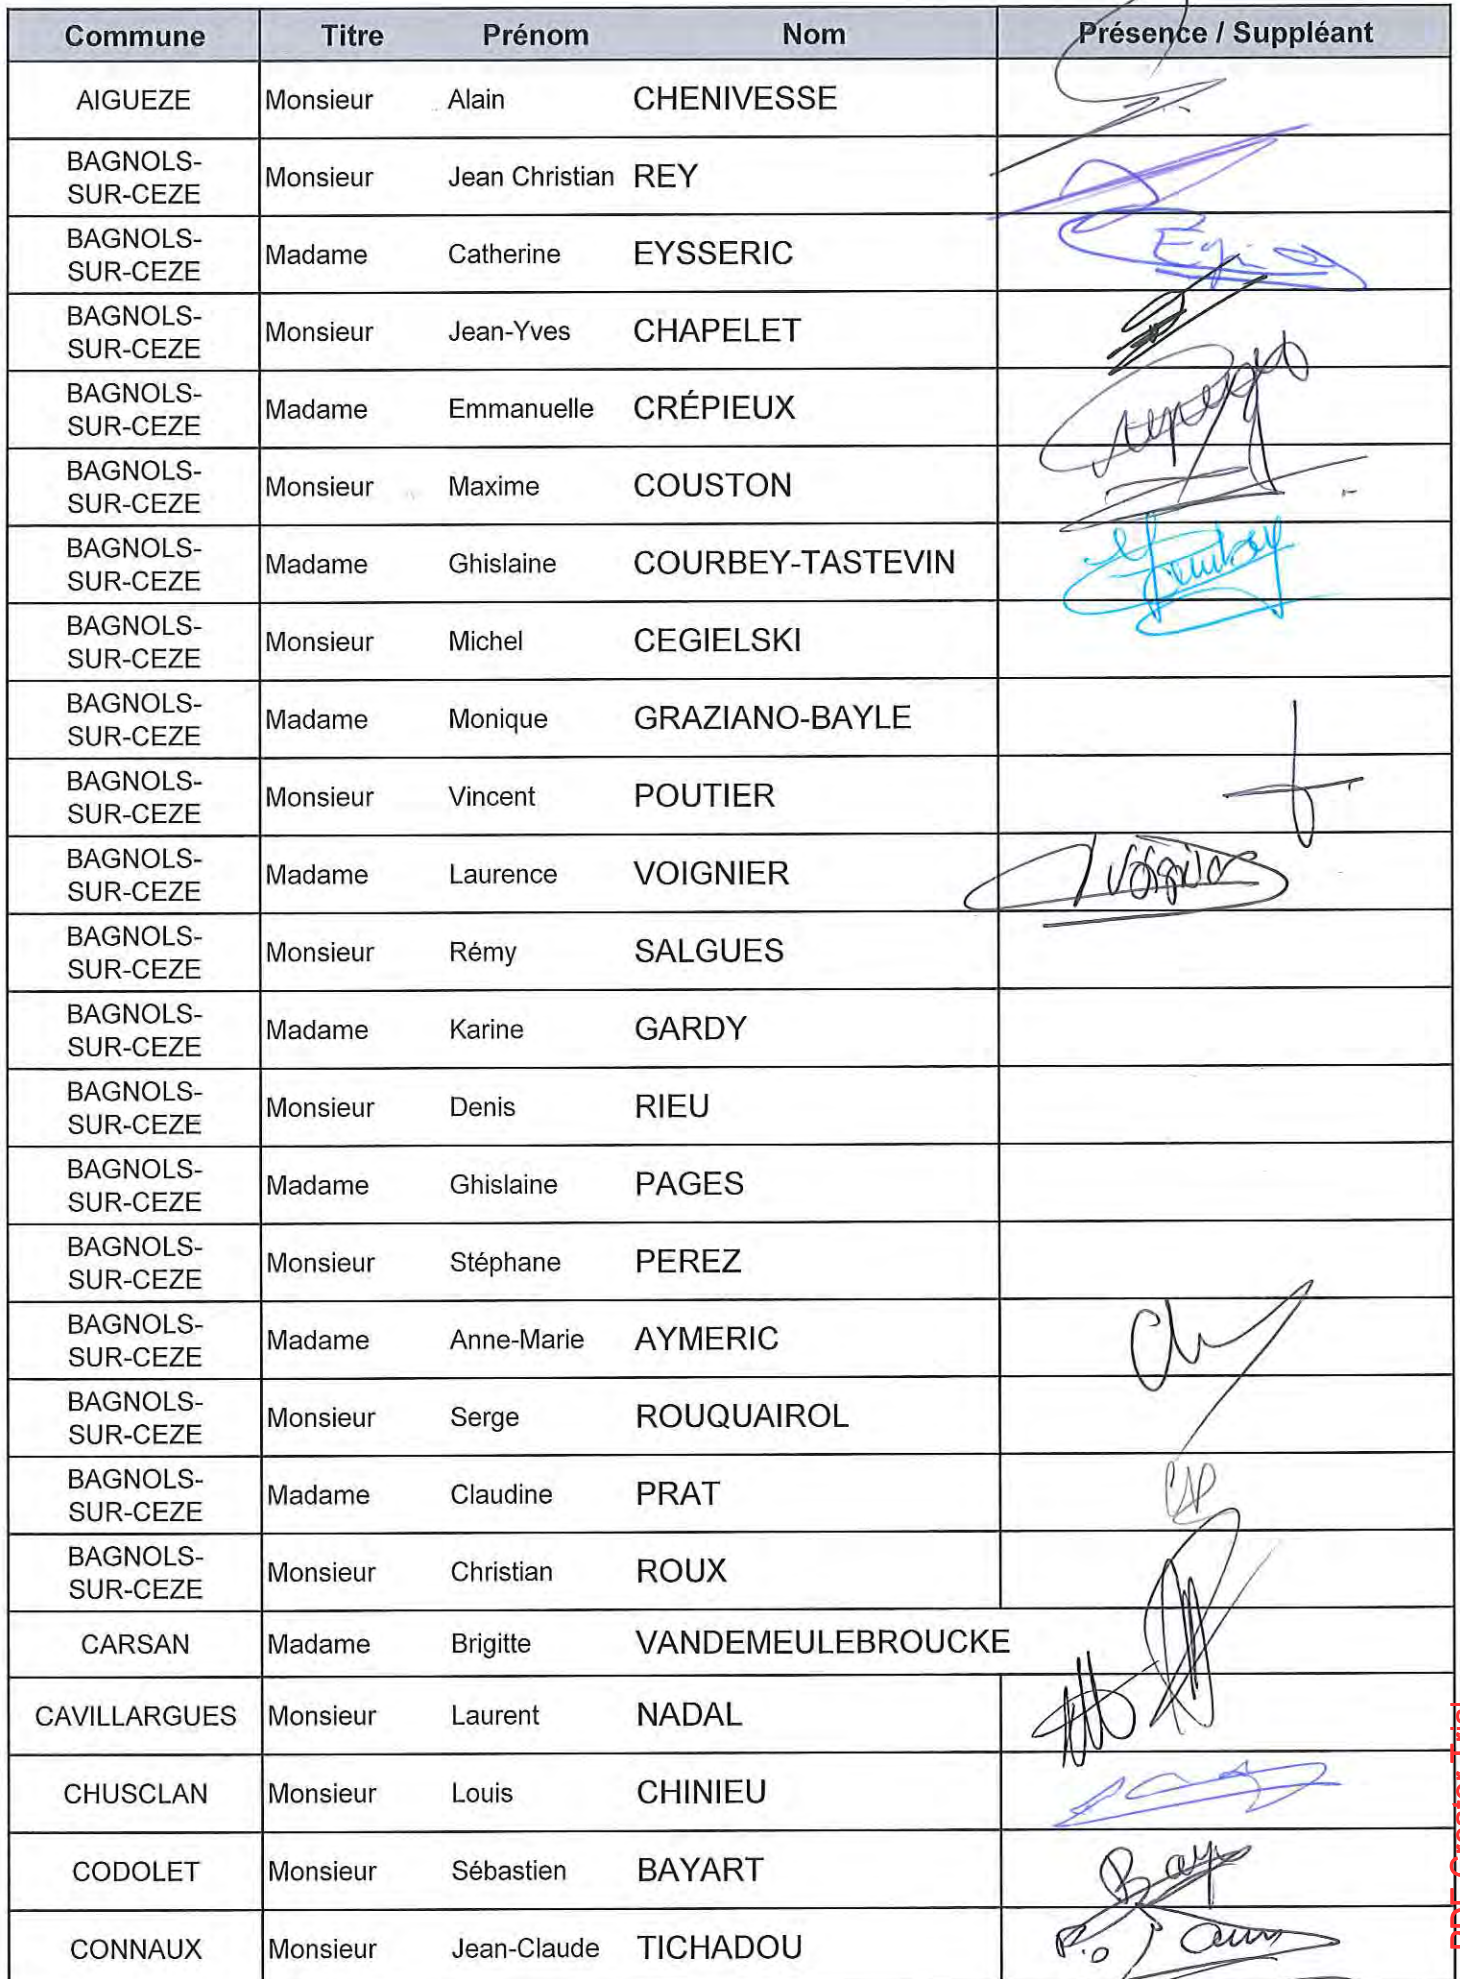 Commune Titre Prénom Nom Présence / Suppléant
AIGUEZE Monsieur Alain CHENIVESSE
BAGNOLS-
SUR-CEZE Monsieur Jean Christian REY
BAGNOLS-
SUR-CEZE Madame Catherine EYSSERIC
BAGNOLS-
SUR-CEZE Monsieur Jean-Yves CHAPELET
BAGNOLS-
SUR-CEZE Madame Emmanuelle CRÉPIEUX
BAGNOLS-
SUR-CEZE Monsieur Maxime COUSTON
BAGNOLS-
SUR-CEZE Madame Ghislaine COURBEY-TASTEVIN
BAGNOLS-
SUR-CEZE Monsieur Michel CEGIELSKI
BAGNOLS-
SUR-CEZE Madame Monique GRAZIANO-BAYLE
BAGNOLS-
SUR-CEZE Monsieur Vincent POUTIER
BAGNOLS-
SUR-CEZE Madame Laurence VOIGNIER
BAGNOLS-
SUR-CEZE Monsieur Rémy SALGUES
BAGNOLS-
SUR-CEZE Madame Karine GARDY
BAGNOLS-
SUR-CEZE Monsieur Denis RIEU
BAGNOLS-
SUR-CEZE Madame Ghislaine PAGES
BAGNOLS-
SUR-CEZE Monsieur Stéphane PEREZ
BAGNOLS-
SUR-CEZE Madame Anne-Marie AYMERIC
BAGNOLS-
SUR-CEZE Monsieur Serge ROUQUAIROL
BAGNOLS-
SUR-CEZE Madame Claudine PRAT
BAGNOLS-
SUR-CEZE Monsieur Christian ROUX
CARSAN Madame Brigitte VANDEMEULEBROUCKE
CAVILLARGUES Monsieur Laurent NADAL
CHUSCLAN Monsieur Louis CHINIEU
CODOLET Monsieur Sébastien BAYART
CONNAUX Monsieur Jean-Claude TICHADOU
PDF Creator Trial